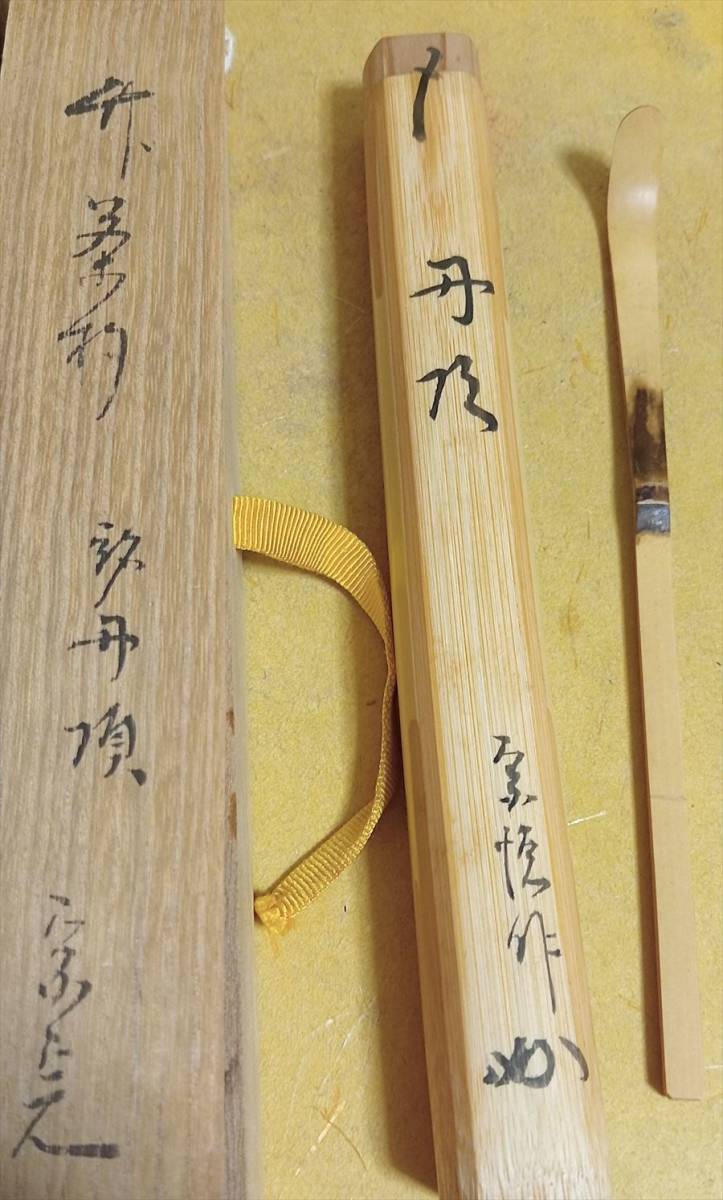 〆
丹頂
宗悦作
竹茶杓 銘丹頂 宗完